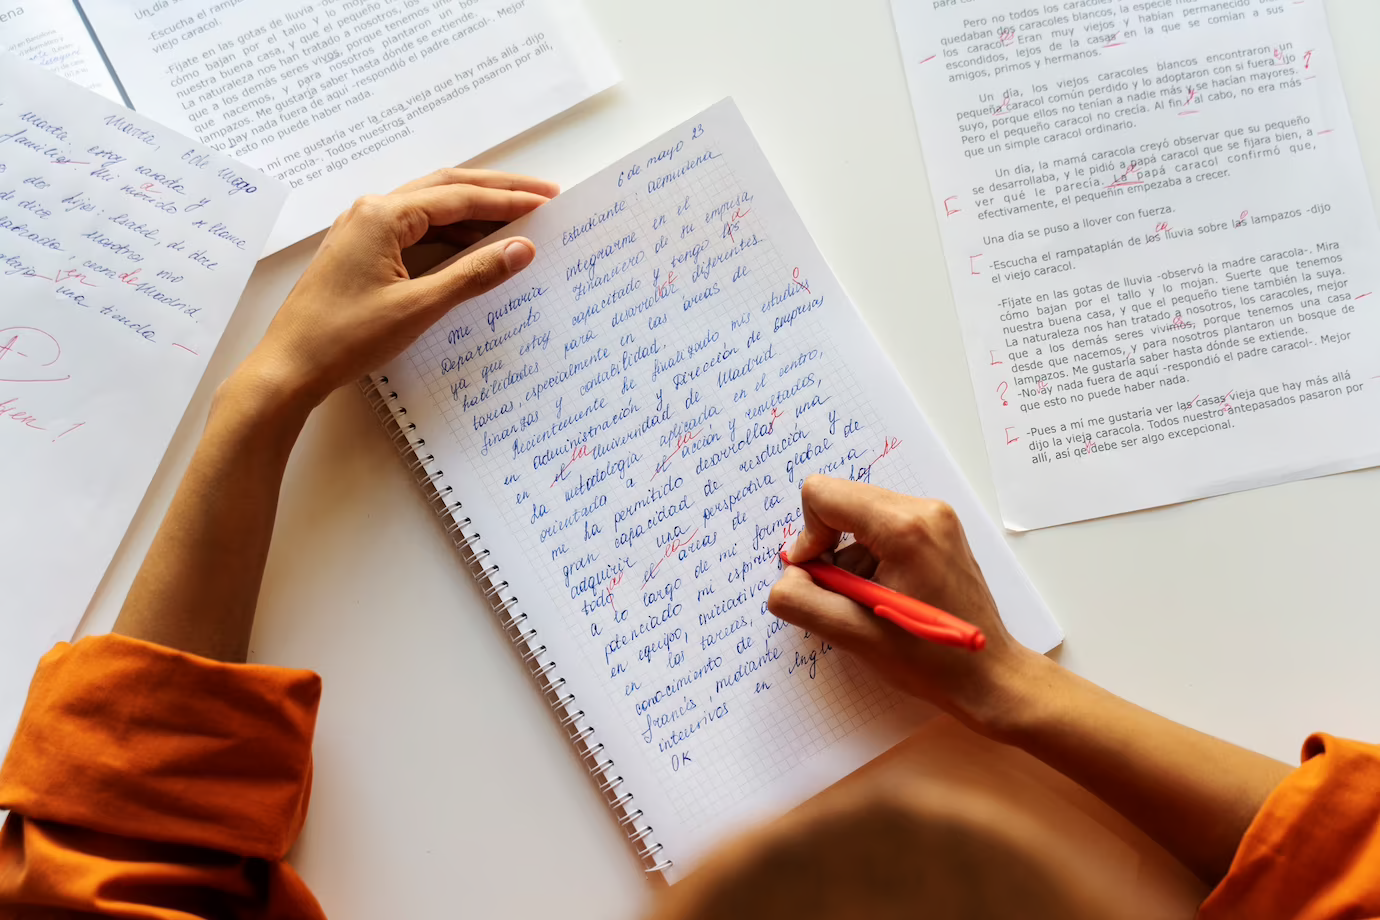 Un día se
-Escucha el rampata
viejo caracol.
-Fíjate en las gotas de lluvia -obser
cómo bajan por el tallo y lo mojan
nuestra buena casa, y que el pequeño tie
La naturaleza nos han tratado a nosotros, los
que a los demás seres vivos, porque tenemos una
que nacemos, y para nosotros plantaron un bo
lampazos. Me gustaría saber hasta dónde se extiende.
-No hay nada fuera de aquí -respondió el padre caracol-. Mejor
esto no puede haber nada.
a mí me gustaría ver la casa vieja que hay más allá -dijo
caracola-. Todos nuestros antepasados pasaron por allí,
be ser algo excepcional.
Marta, 6 de mayo
Marta, estoy casada y
familia. Mi marido se llama
dos hijos: Isabel, de doce
de doce. Nosotros vivo
de Madrid.
en
una tienda
A-
bien!
6 de mayo 23
Estudiante: Almudena
Me gustaria integrarme en el
Departamento Financiero de su empresa,
a
ya que estoy capacitado y tengo las
habilidades para desarrollar diferentes
tareas, especialmente en las áreas de
finanzas y contabilidad.
Recientemente he finalizado mis estudios
o
en administración y Dirección de Empresas
en el Universidad de Madrid
la
La metodología aplicada en el centro,
orientada a el acción y resultados,
la
me ha permitido desarrollar una
gran capacidad de resolución y
adquirir una perspectiva global de
todo el areas de la empresa.
a lo largo de mi formac
hoy he
potenciado mi espiritu
en equipo, iniciativa
en las tareas,
conocimiento de
francés, mediante
intensivos en
OK
Pero no todos los caracoles
quedaban dos caracoles blancos, la especie más
los caracol. Eran muy viejos y habían permanecido
escondidos, lejos de la casas en la que se comían a sus
amigos, primos y hermanos.
Un día, los viejos caracoles blancos encontraron un
pequeña caracol común perdido y lo adoptaron con si fuera ijo
suyo, porque ellos no tenían a nadie más y se hacían mayores.
Pero el pequeño caracol no crecía. Al fin y al cabo, no era más
que un simple caracol ordinario.
?
Un día, la mamá caracola creyó observar que su pequeño
se desarrollaba, y le pidió a papá caracol que se fijara bien, a
ver qué le parecía. La papá caracol confirmó que,
efectivamente, el pequeñín empezaba a crecer.
Una día se puso a llover con fuerza.
-Escucha el rampataplán de los lluvia sobre las lampazos -dijo
el viejo caracol.
-Fíjate en las gotas de lluvia -observó la madre caracola-. Mira
cómo bajan por el tallo y lo mojan. Suerte que tenemos
nuestra buena casa, y que el pequeño tiene también la suya.
La naturaleza nos han tratado a nosotros, los caracoles, mejor
que a los demás seres vivimos, porque tenemos una casa
desde que nacemos, y para nosotros plantaron un bosque de
lampazos. Me gustaría saber hasta dónde se extiende.
-No ay nada fuera de aquí -respondió el padre caracol-. Mejor
que esto no puede haber nada.
?
-Pues a mí me gustaría ver las casas vieja que hay más allá
dijo la vieja caracola. Todos nuestro antepasados pasaron por
allí, así qe debe ser algo excepcional.